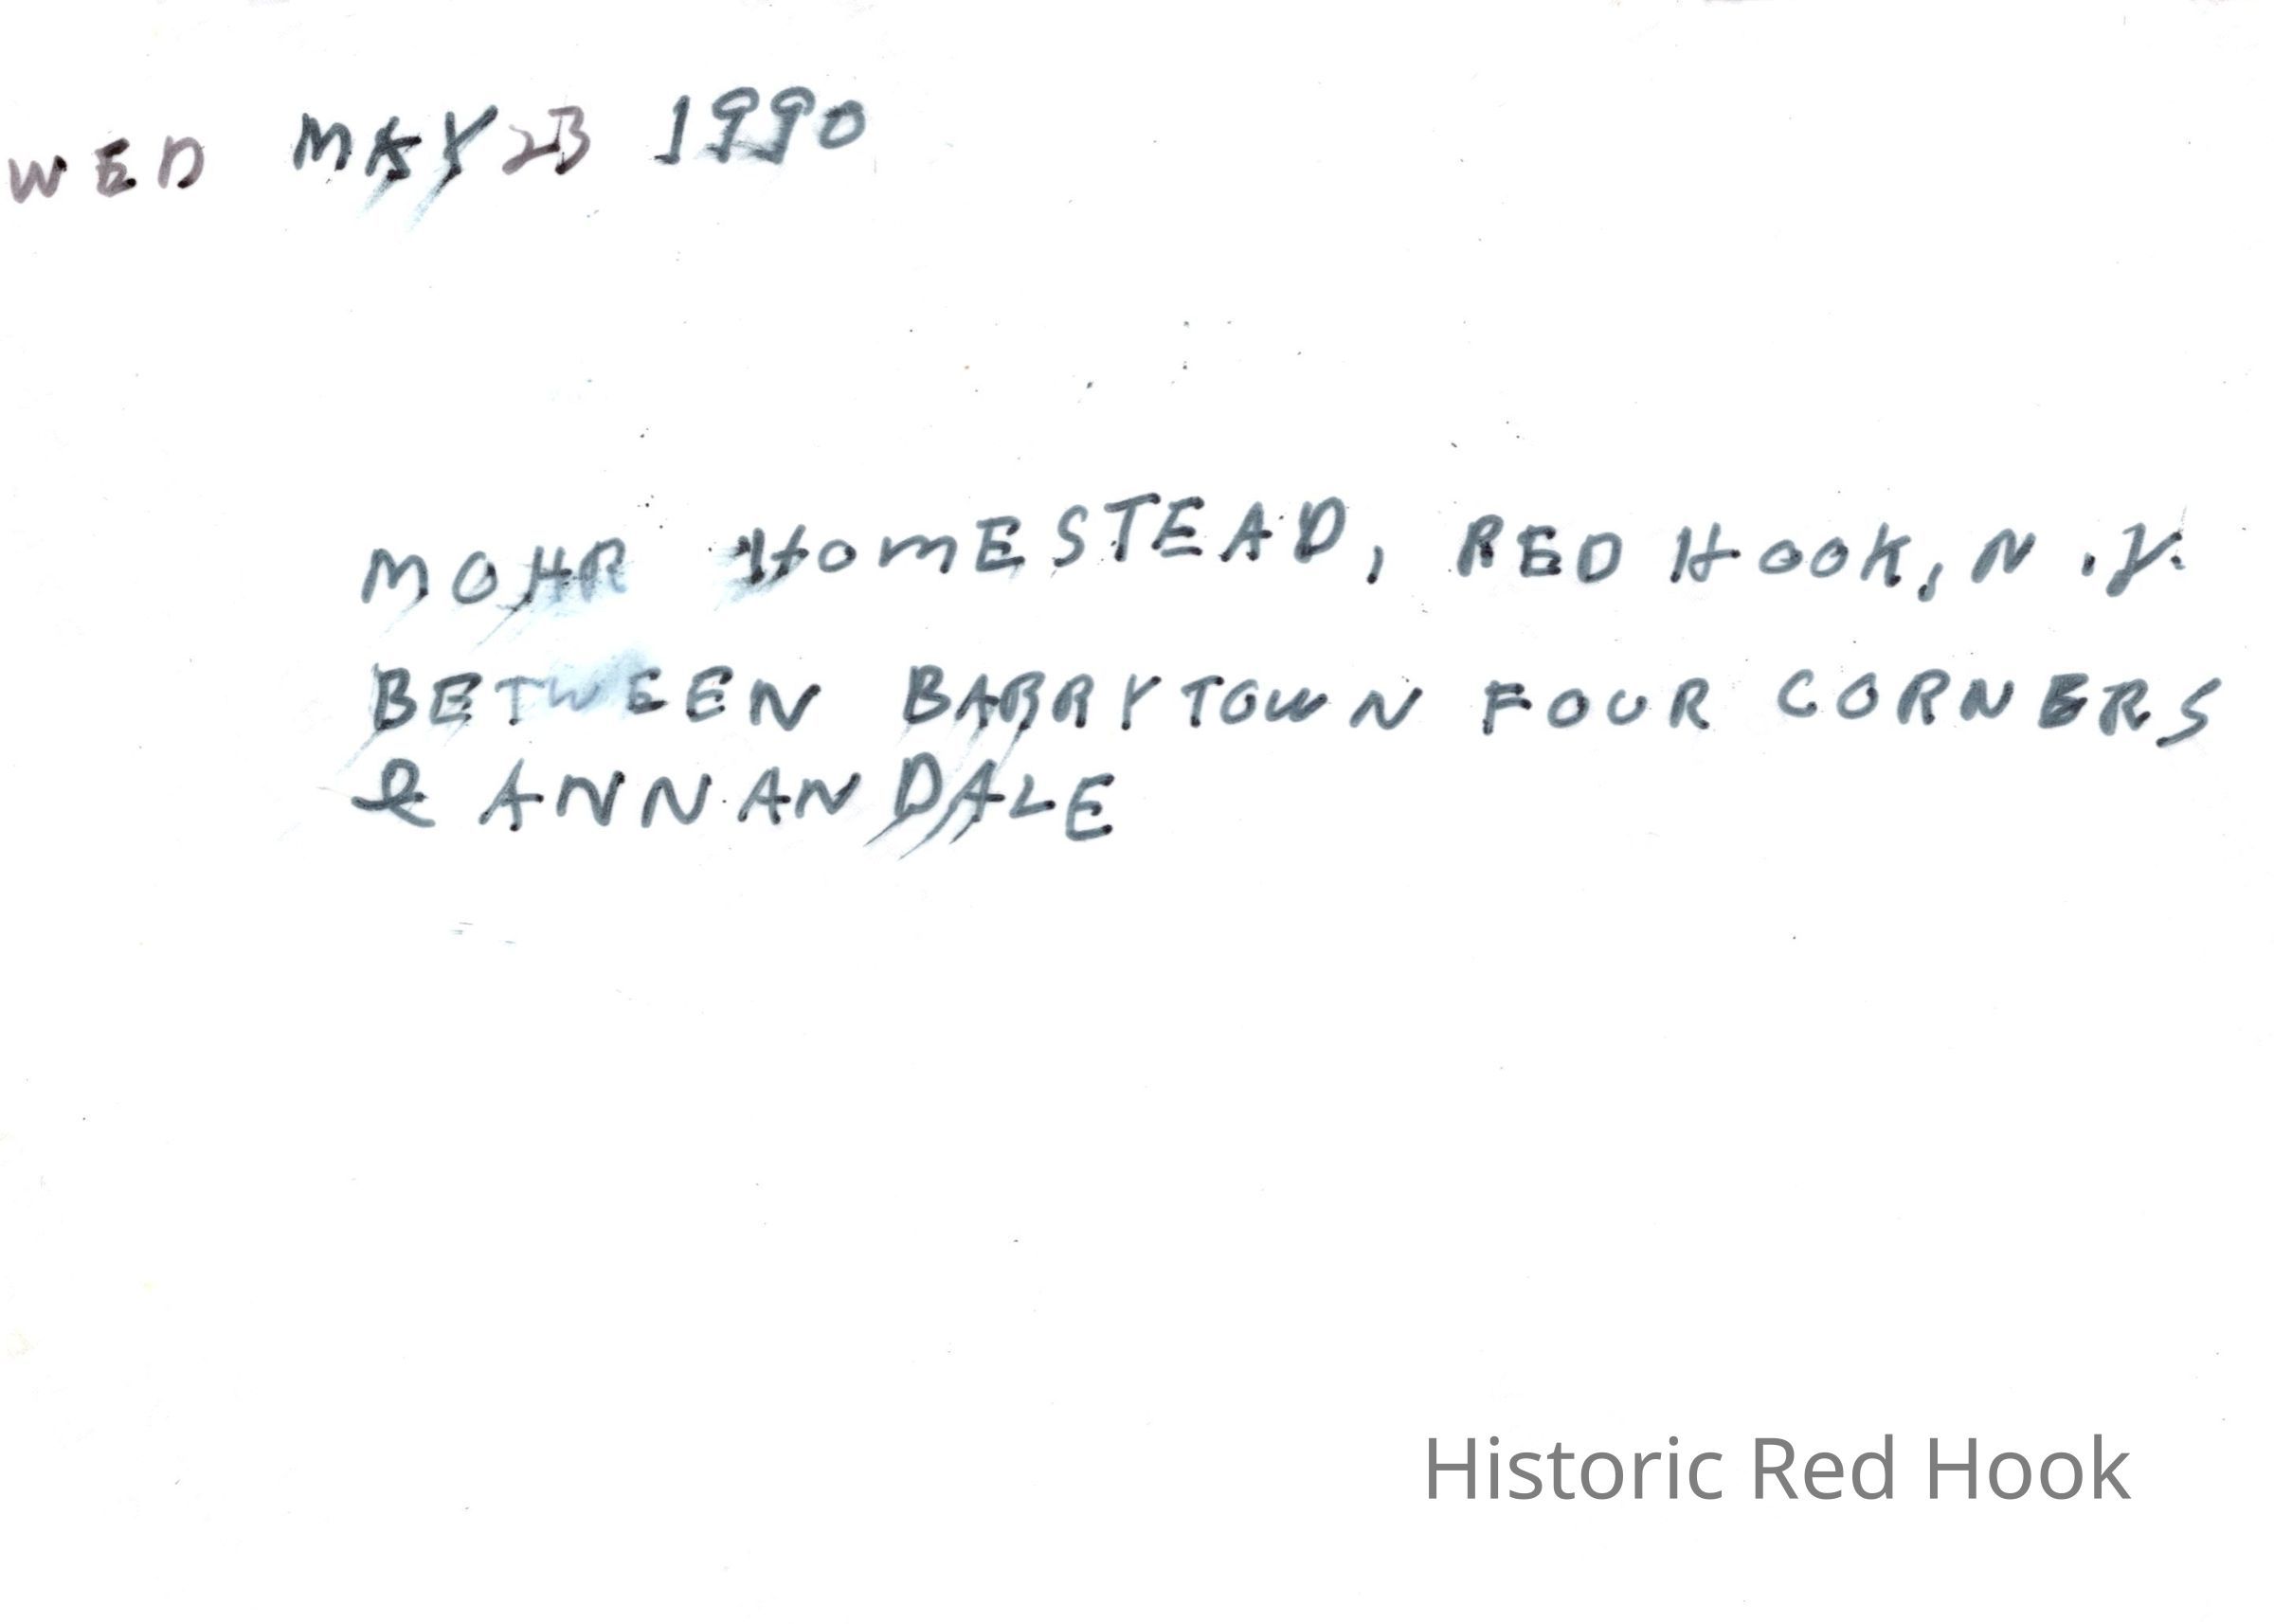 WED MAY 23 1990
MOHR HOMESTEAD, RED HOOK, N.Y.
BETWEEN BARRYTOWN FOUR CORNERS
& ANNANDALE
Historic Red Hook